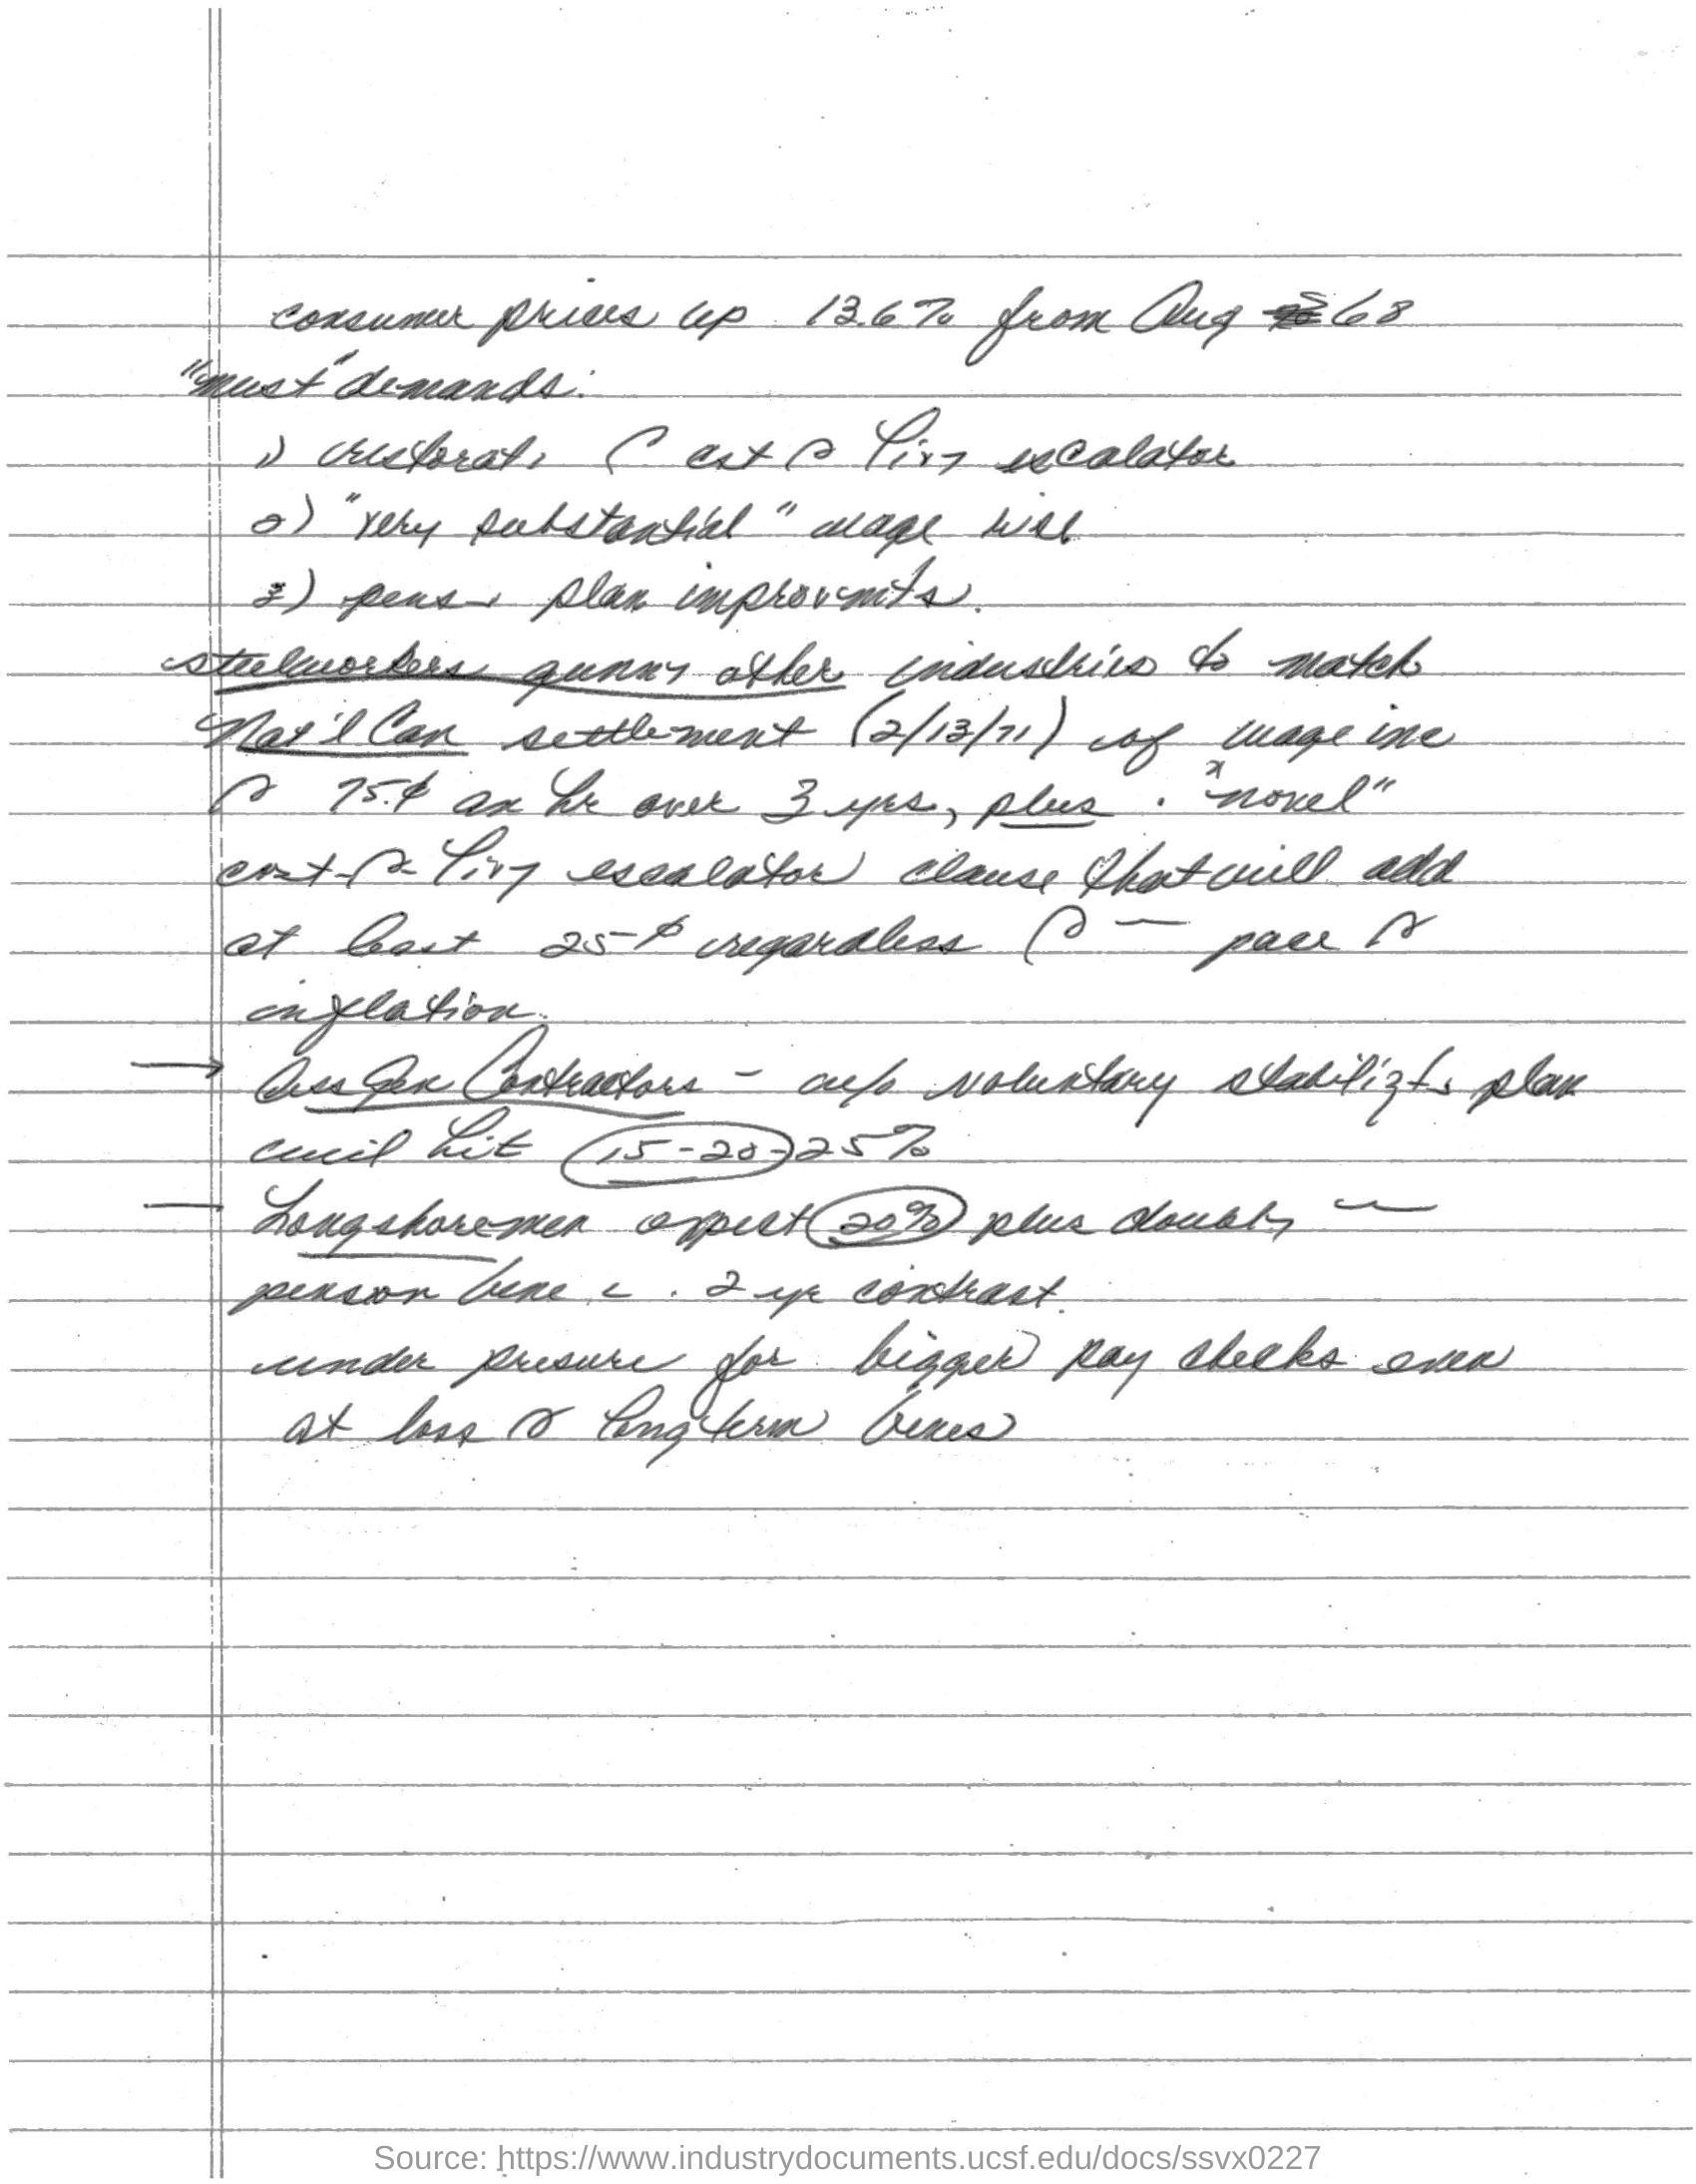 consumer prices up 13.6% from Aug 68
"must" demands:
1) restorat. cst livg escalator
2) "very substantial" wage rise
3) pens. plan improvmts.
steelworkers gunng other industries to match
Nat'l Can settlement (2/13/71) of wage inc
75¢ an hr over 3 yrs, plus . "novel"
cost livg escalator clause that will add
at least 25¢ regardless pace
inflation.
→ Ass Gen Contractors - w/o voluntary stabilizt. plan
will hit 15-20-25%
— Longshoremen expect 20% plus doublg
penson bene c . 2 yr contrast.
under presure for bigger pay checks even
at loss long term benes
Source: https://www.industrydocuments.ucsf.edu/docs/ssvx0227